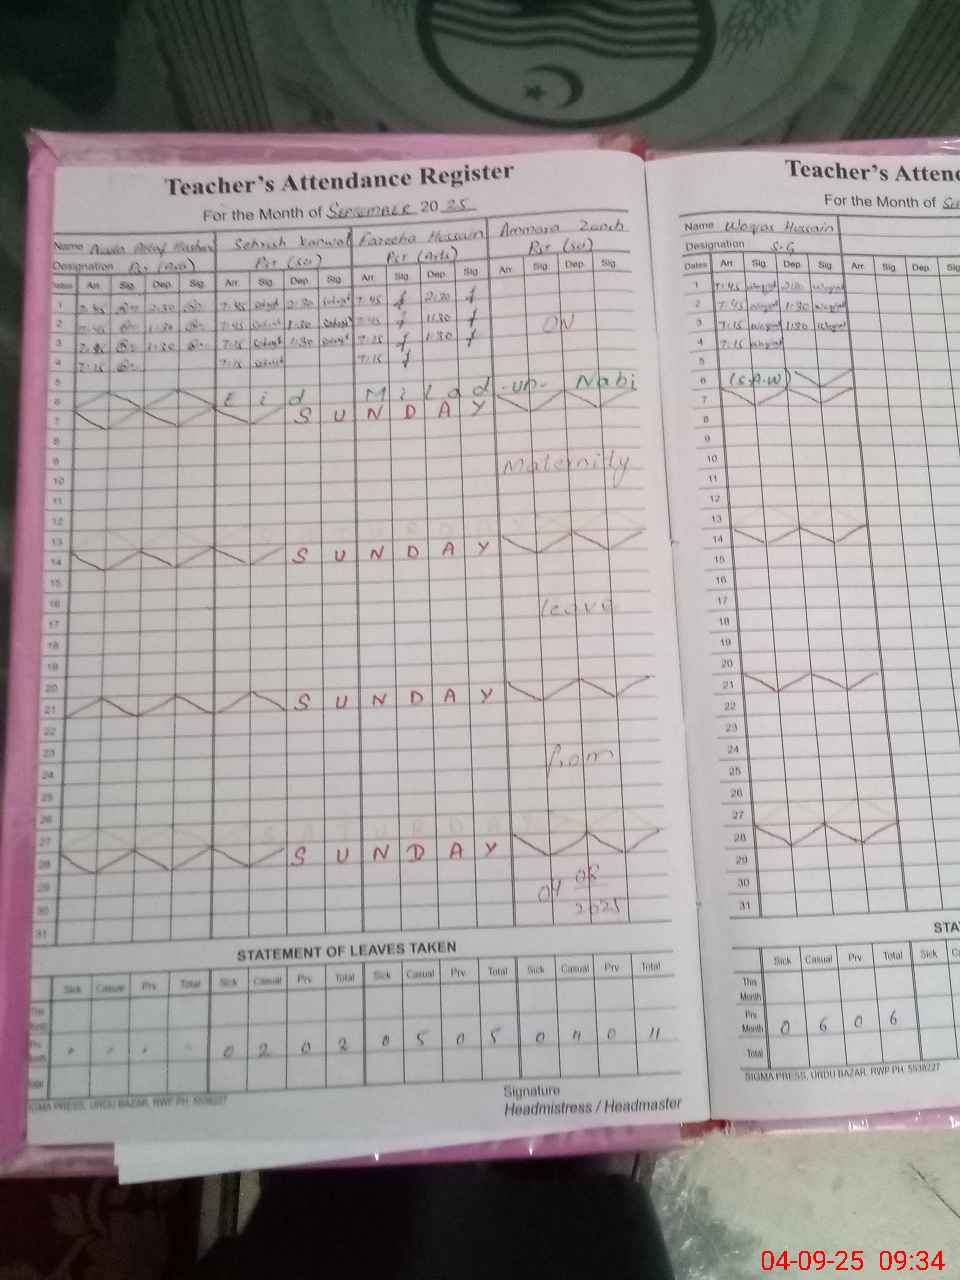 Teacher's Attendance Register
For the Month of September 2025
Name Sehrish Kanwal Fareeha Hussain Ammara Zaneb
Designation Pst (Arts) Pst (Sci) Pst (Arts) Pst (Sci)
Dates Arr. Sig. Dep. Sig. Arr. Sig. Dep. Sig. Arr. Sig. Dep. Sig. Arr. Sig. Dep. Sig.
1 7:45 2:30 7:45 2:30 7:45 2:30
2 7:45 1:30 7:45 1:30 7:45 1:30 ON
3 7:15 1:30 7:15 1:30 7:15 1:30
4 7:15 7:15 7:15
5
6 Eid Milad -un- Nabi
7 SUNDAY
8
9 Maternity
10
11
12
13 SATURDAY
14 SUNDAY
15
16 leave
17
18
19
20
21 SUNDAY
22
23 from
24
25
26
27 SATURDAY
28 SUNDAY
29 04 08
30 2025
31
STATEMENT OF LEAVES TAKEN
Sick Casual Prv Total Sick Casual Prv Total Sick Casual Prv Total Sick Casual Prv Total
This Month
Prv Month 0 2 0 2 0 5 0 5 0 11 0 11
Total
SIGMA PRESS, URDU BAZAR, RWP PH: 5538227
Signature
Headmistress / Headmaster
Teacher's Atten
For the Month of Se
Name Waqas Hussain
Designation S.G
Dates Arr. Sig. Dep. Sig. Arr. Sig. Dep.
1 7:45 2:30
2 7:45 1:30
3 7:15 1:30
4 7:15
5
6 (S.A.W)
7
8
9
10
11
12
13
14
15
16
17
18
19
20
21
22
23
24
25
26
27
28
29
30
31
STA
Sick Casual Prv Total Sick
This Month
Prv Month 0 6 0 6
Total
SIGMA PRESS, URDU BAZAR, RWP PH: 5538227
04-09-25 09:34